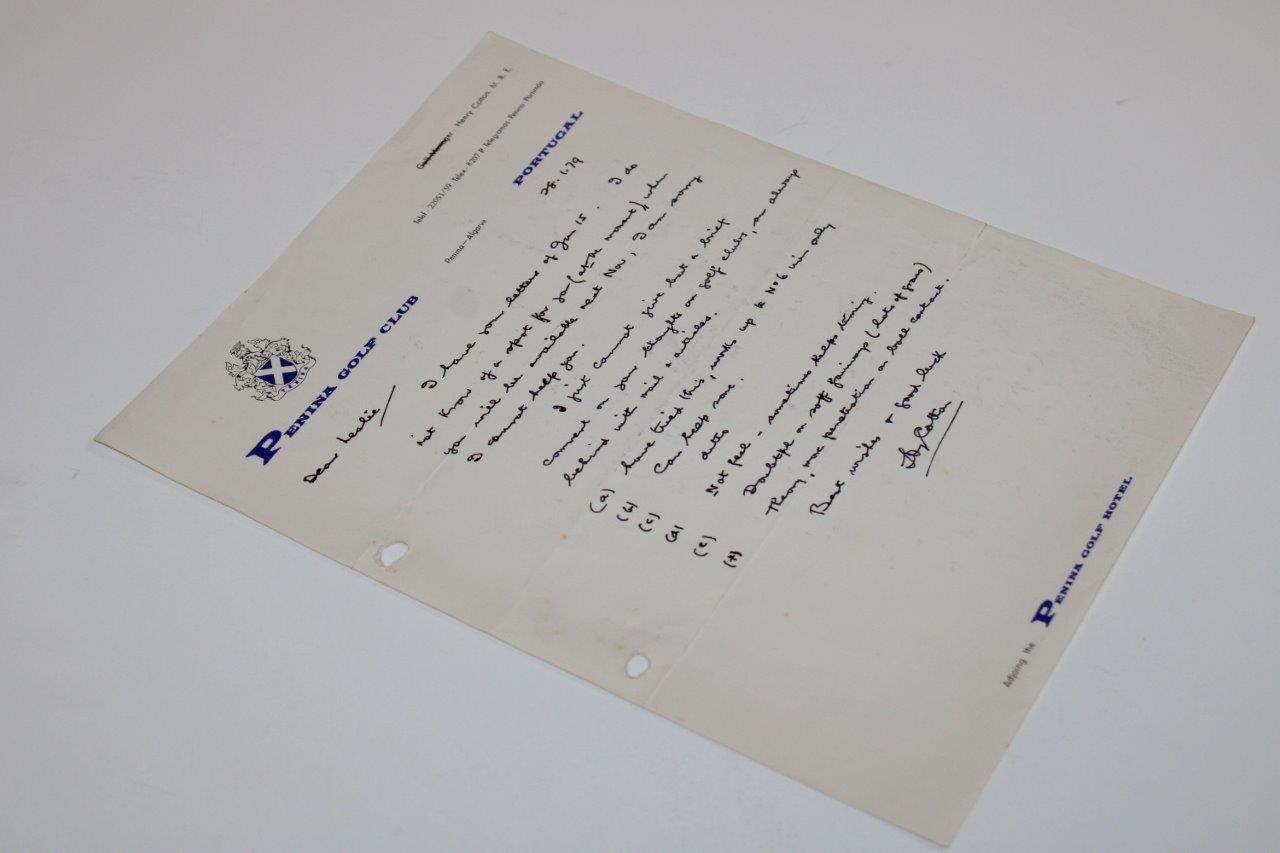 Henry Cotton, M. B. E.
Telef. 22051/59 · Telex. 8207 P · Telegramas · Penina · Portimão
Penina - Algarve
PENINA
PENINA GOLF CLUB
PORTUGAL
28.1.79
Dear Leslie
I have your letters of Jan 15. I do
not know of a spot for you (at the moment), when
you will be available next Nov, I am sorry
I cannot help you.
I just cannot give but a brief
comment on your thoughts on golf clubs, am always
behind with mail & articles.
(a) have tried this, works up to No 6 iron only
(b) Can help some.
(c) ditto
(d) Not feel - sometimes helps timing.
(e) Doubtful on soft fairways (lots of grass)
(f) Theory, more penetration on ball contact.
Best wishes & good luck
Cotton
Adjoing the PENINA GOLF HOTEL